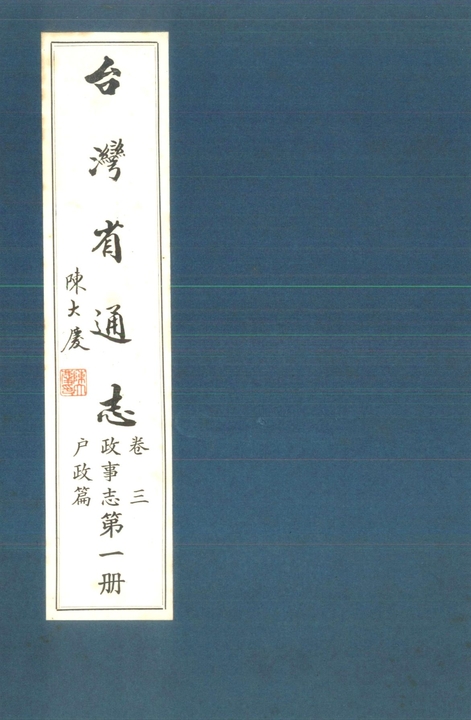 台灣省通志
陳大慶
卷三
政事志
戶政篇
第一册